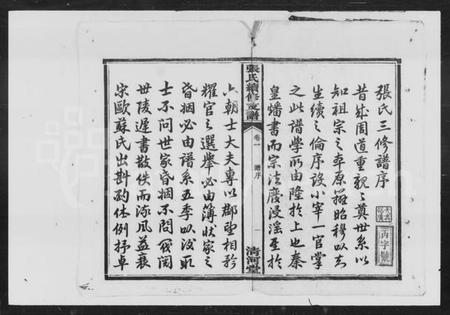 張氏三修譜序
昔成周道重親親奠世系以
知祖宗之本原辨昭穆以志
生續之倫序設小宰一官掌
之此譜學所由隆於上也秦
皇燔書而宗法廢浸淫至於
張氏續修支譜
卷一
譜序
一
清河堂
六朝士大夫專以郡望相矜
耀官之選舉必由簿狀家之
昏姻必由譜系五季以後取
士不問世家昏姻不問閥閱
世陵遲書散佚而流風益衰
宋歐蘇氏出斟酌体例抒卓